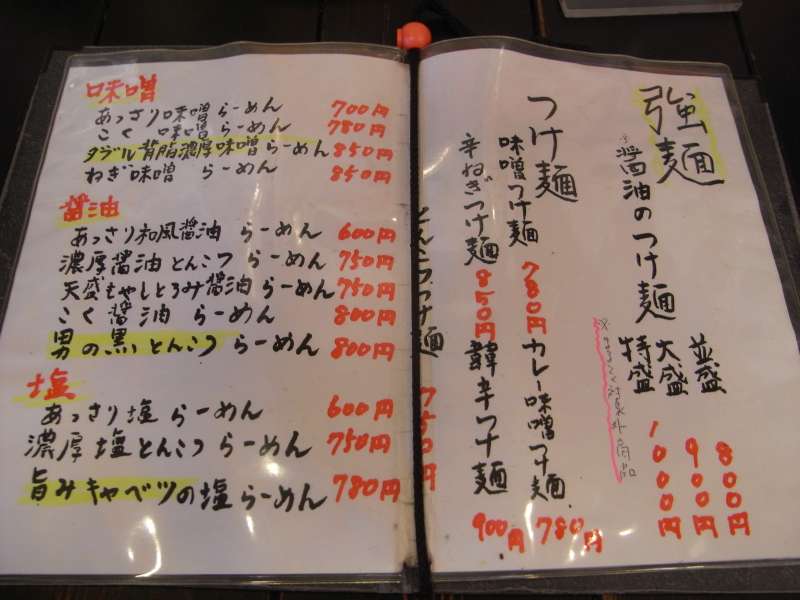 味噌
あっさり味噌らーめん 700円
こく 味噌 らーめん 780円
ダブル背脂濃厚味噌らーめん 850円
ねぎ味噌 らーめん 850円
醤油
あっさり和風醤油 らーめん 600円
濃厚醤油とんこつ らーめん 750円
天盛もやしとろみ醤油らーめん 750円
こく 醤油 らーめん 800円
男の黒とんこつ らーめん 800円
塩
あっさり塩 らーめん 600円
濃厚塩とんこつ らーめん 750円
旨みキャベツの塩らーめん 780円
強麺
醤油のつけ麺
並盛 800円
大盛 900円
特盛 1000円
つけ麺
味噌つけ麺 780円
カレー味噌つけ麺 780円
辛ねぎつけ麺 850円
韓辛つけ麺 900円
とんこつつけ麺 750円